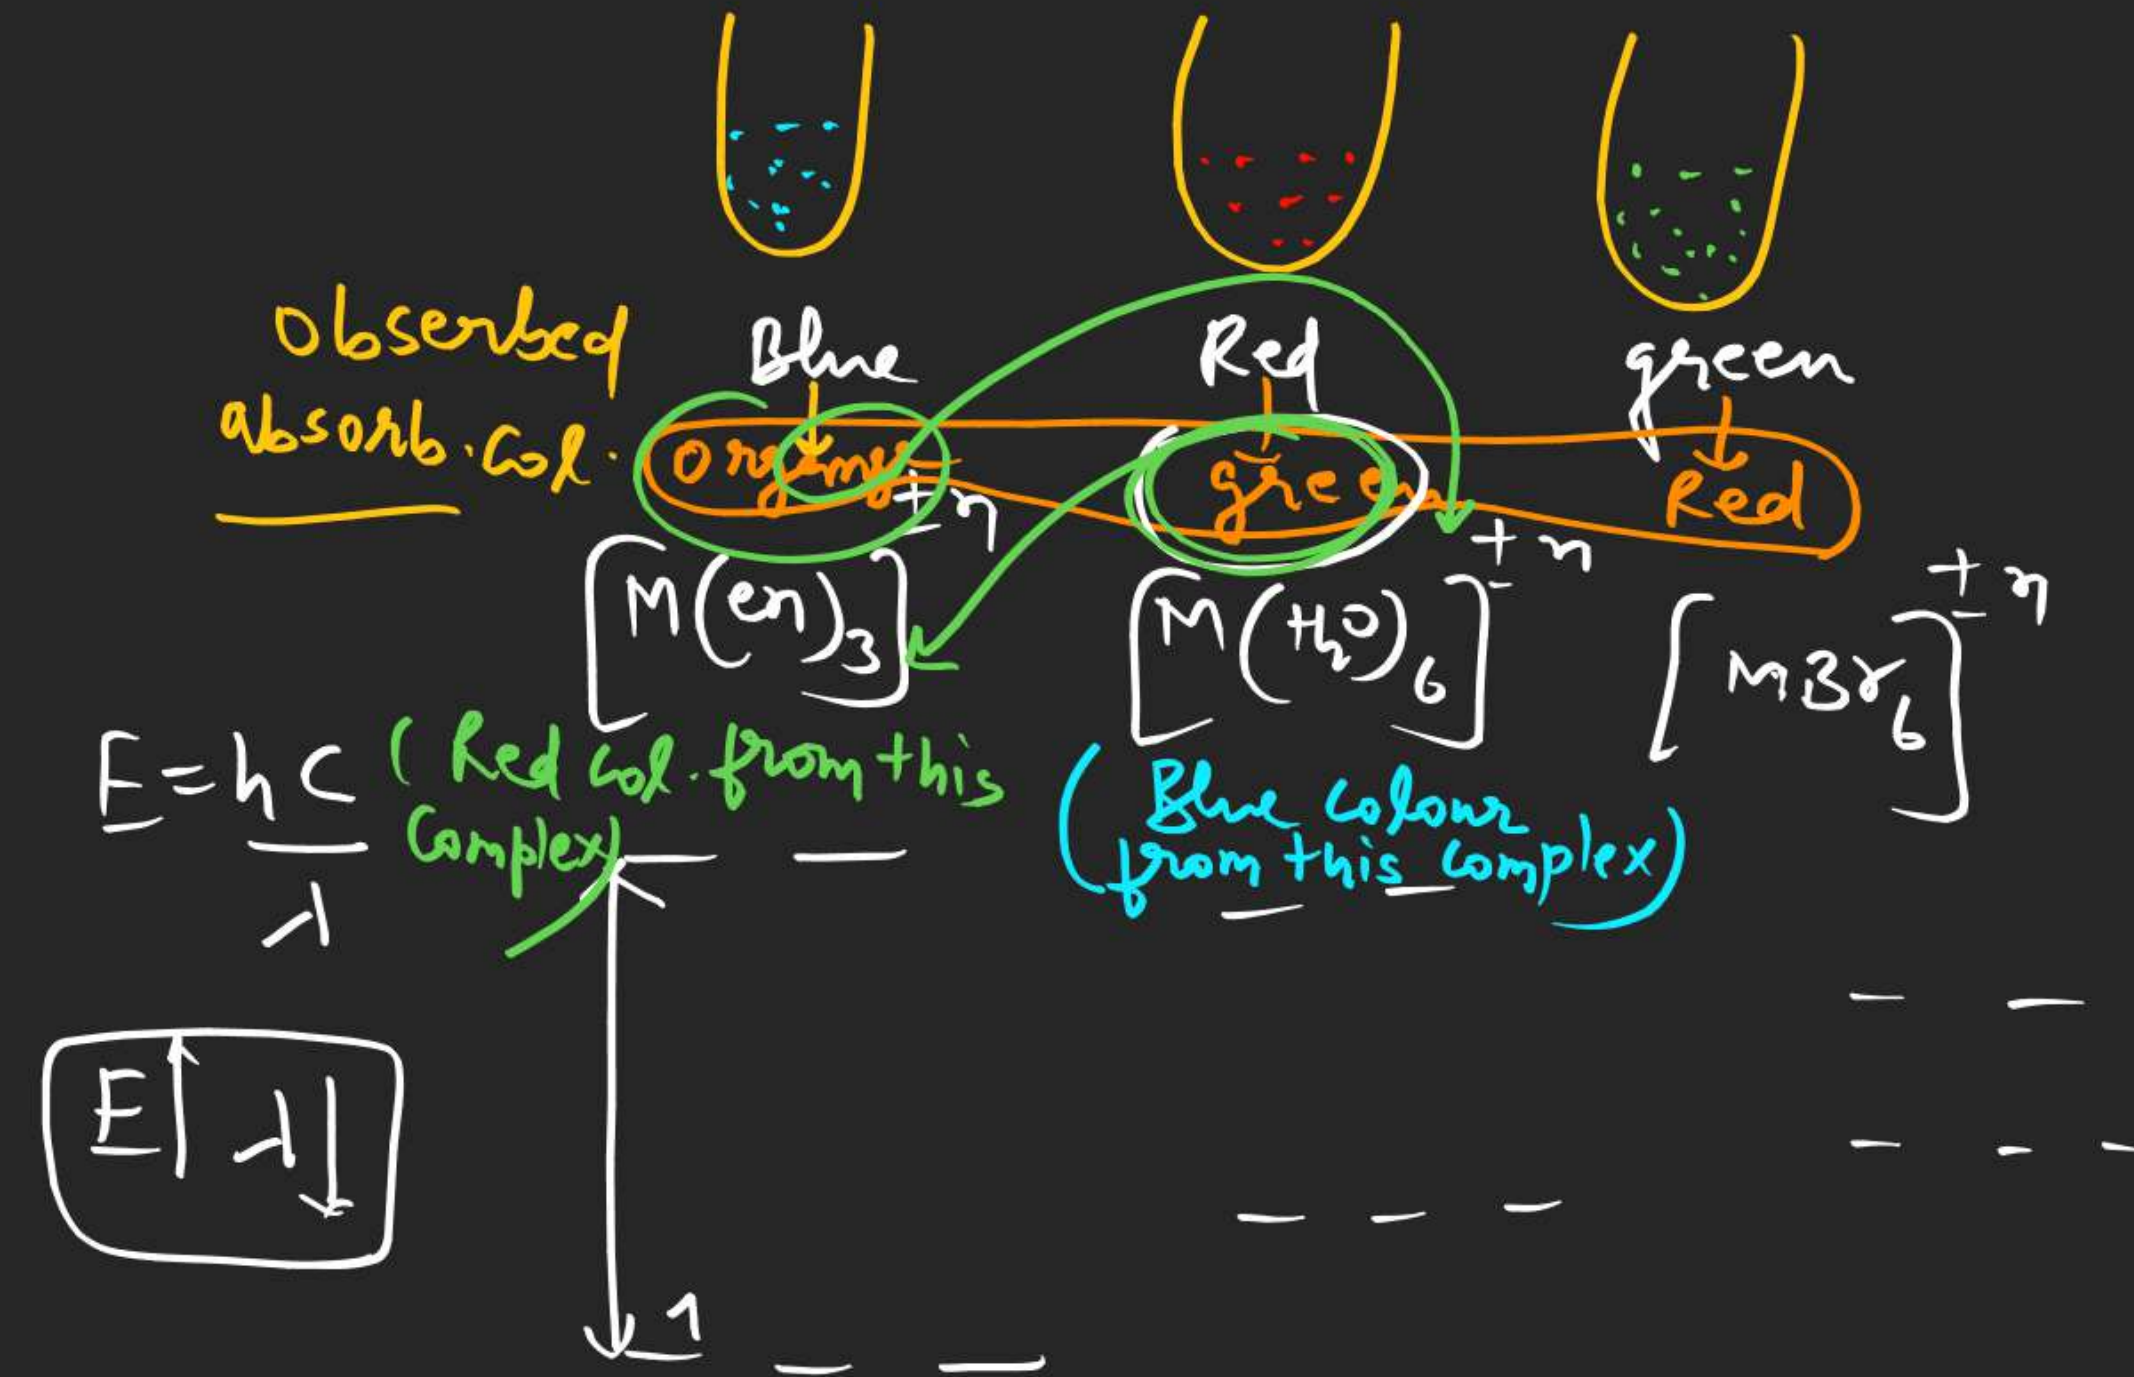 Observed
Blue Red green
absorb. Col.
Orange green Red
[M(en)3]±n [M(H2O)6]±n [MBr6]±n
E = hC
λ
(Red Col. from this
Complex)
(Blue colour
from this complex)
E↑ λ↓
1